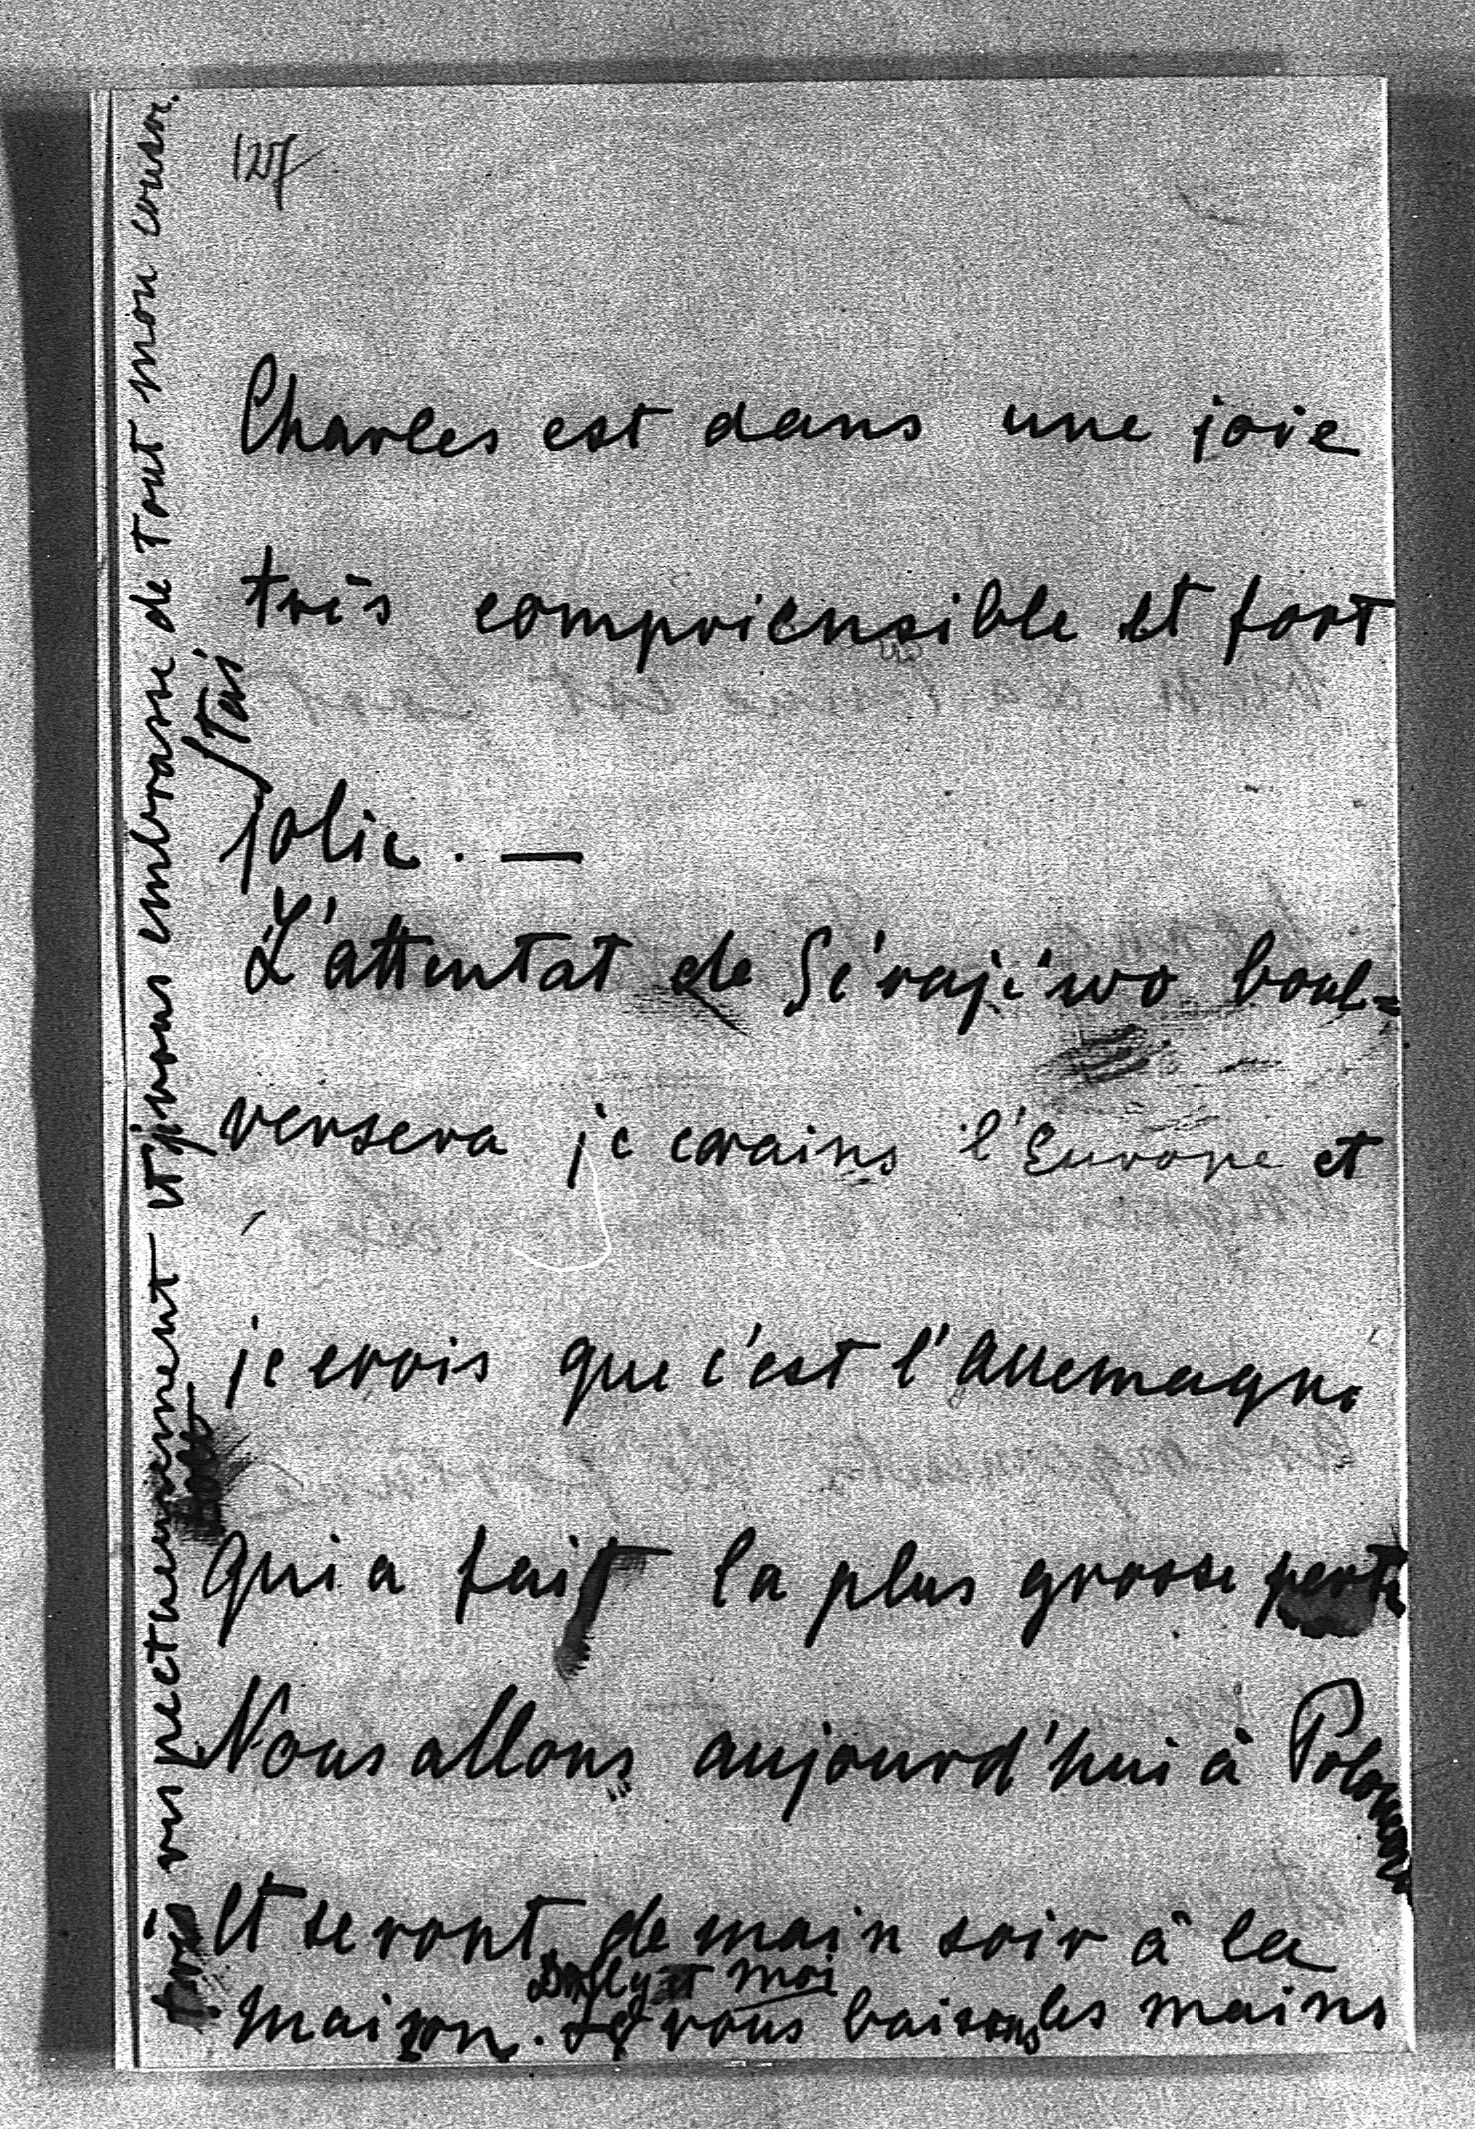 127
Charles est dans une joie
très compriensible et fort
jolie. —
L'attentat de Sérajéwo boul=
versera je crains l'Europe et
je crois que c'est l'Allemagne
qui a fait la plus grosse perte
Nous allons aujourd'hui à
Et seront demain soir à la
Dolly et moi
maison. vous baisons les mains
très respectueusement et je vous embrasse de tout mon coeur.
Stas